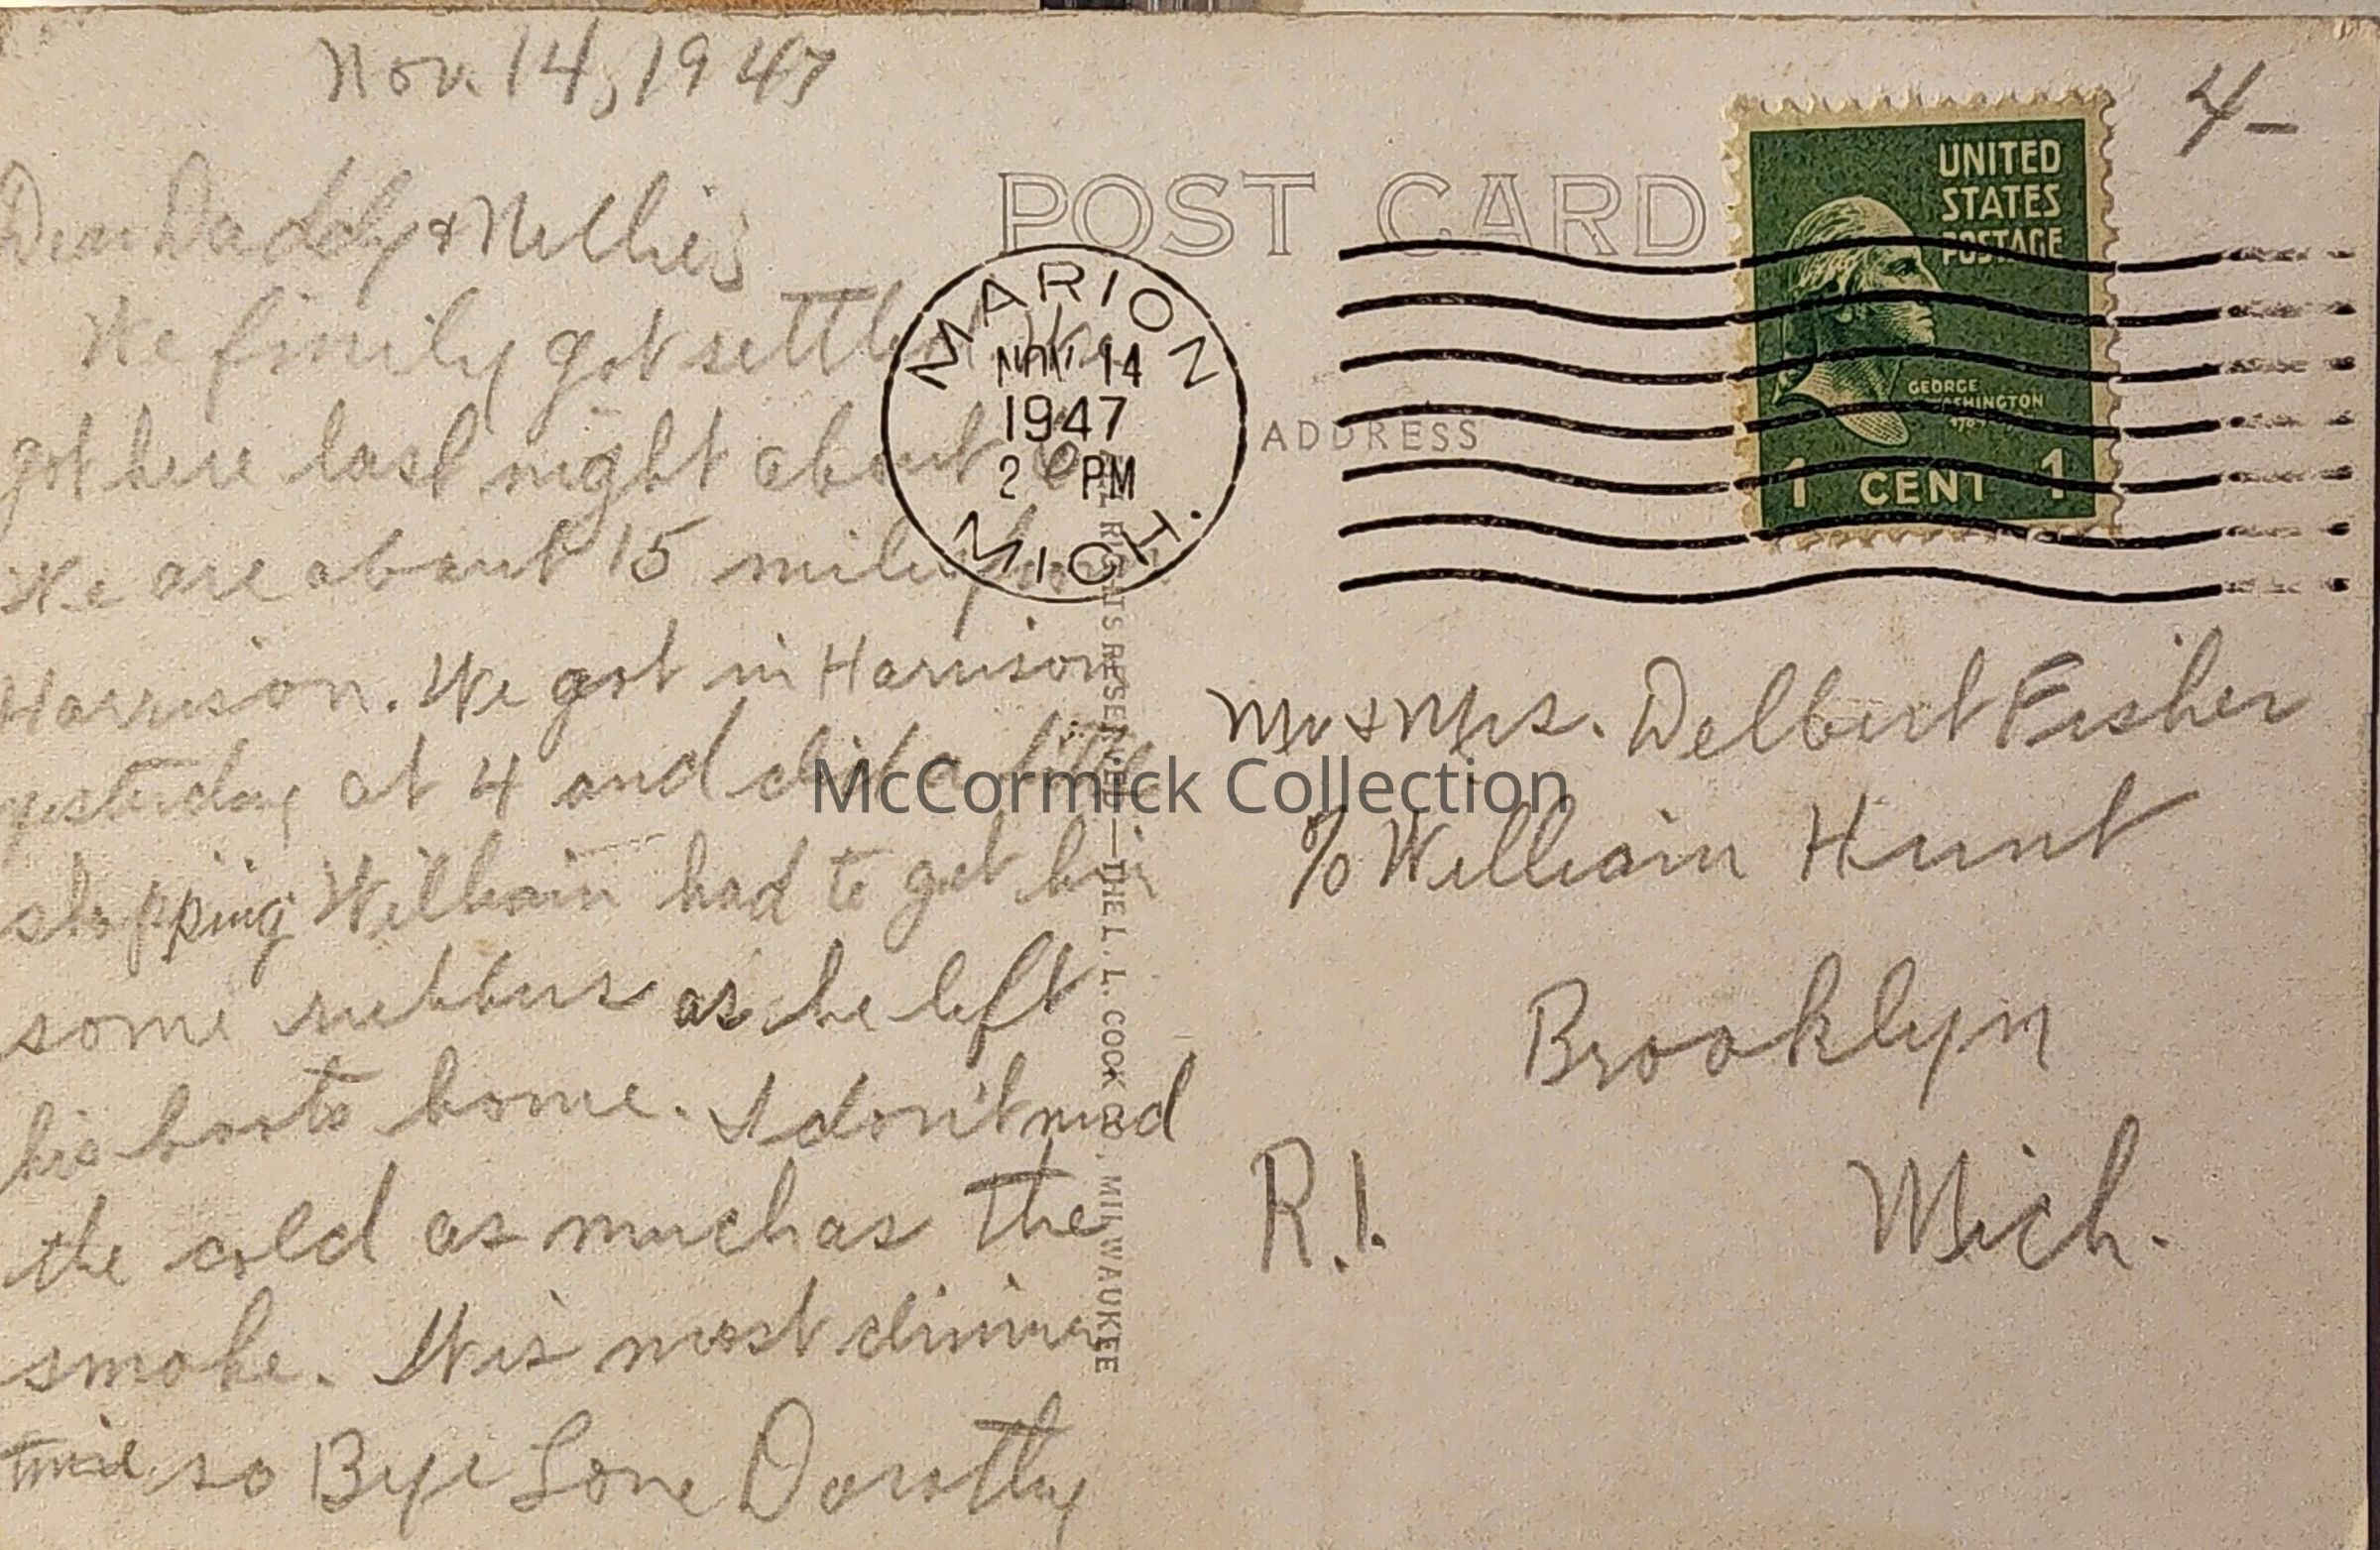 Nov. 14, 1947
4-
Dear Daddy & Nellie;
We finily got settled. We
got here last night about 6
We are about 15 miles from
Harrison. We got in Harrison
yesterday at 4 and did a little
shopping William had to get him
some rubbers as he left
his boots home. I don't mind
the cold as much as the
smoke. It is most dinner
time so Bye Love Dorothy
POST CARD
MARION
NOV 14
1947
2 PM
MICH.
UNITED
STATES
POSTAGE
GEORGE
WASHINGTON
1 CENT 1
ADDRESS
RIGHTS RESERVED—THE L. L. COOK CO., MILWAUKEE
Mr & Mrs. Delbert Fisher
% William Hunt
Brooklyn
R.1. Mich.
McCormick Collection